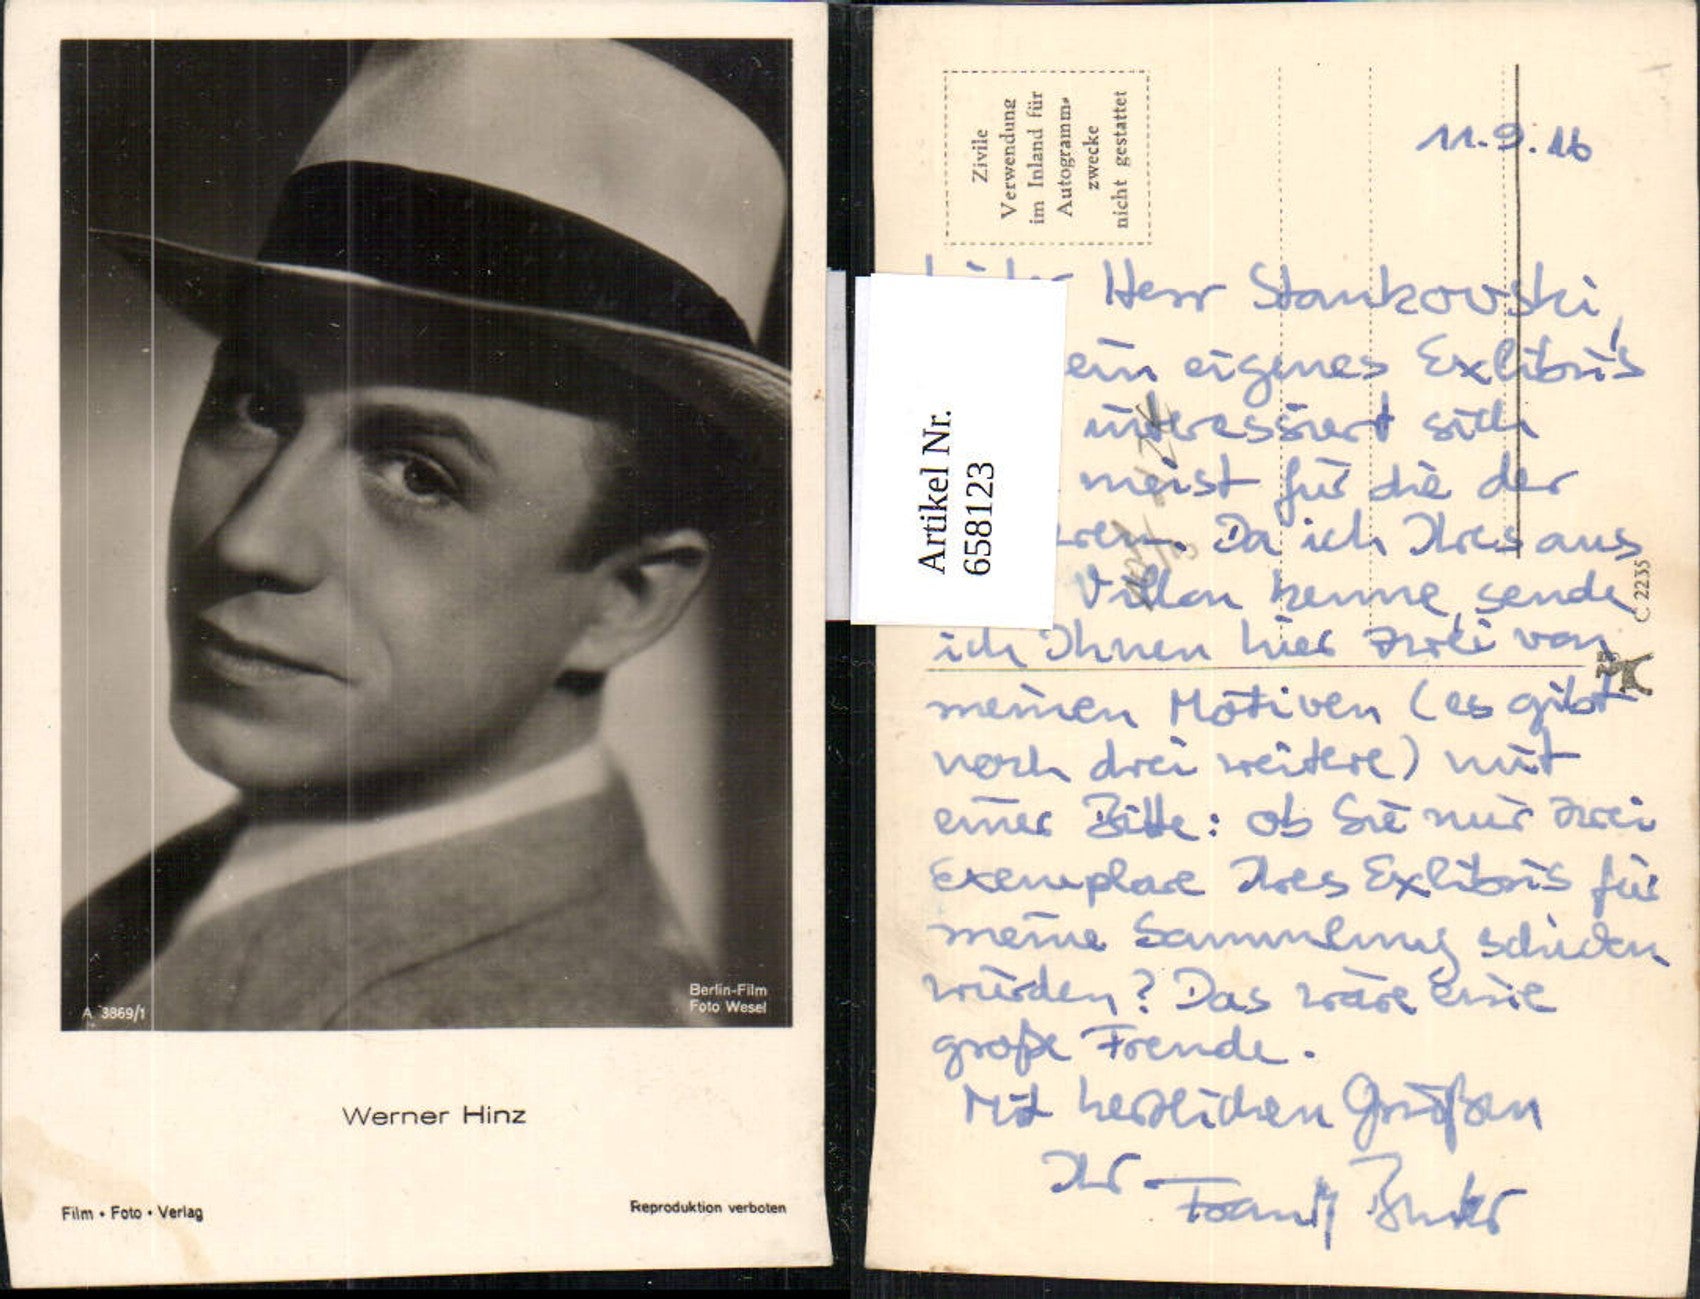 A 3869/1
Berlin-Film
Foto Wesel
Werner Hinz
Film • Foto • Verlag
Reproduktion verboten
Zivile
Verwendung
im Inland für
Autogramm-
zwecke
nicht gestattet
11.9.16
Artikel Nr.
658123
C 2235
Herr Stankovski,
ein eigenes Exlibris
interessiert sich
meist für die der
Da ich Ihres aus
Villon kenne, sende
ich Ihnen hier zwei von
meinen Motiven (es gibt
noch drei weitere) mit
einer Bitte: ob Sie mir zwei
Exemplare Ihres Exlibris für
meine Sammlung schicken
würden? Das wäre eine
große Freude.
Mit herzlichen Grüßen
Ihr